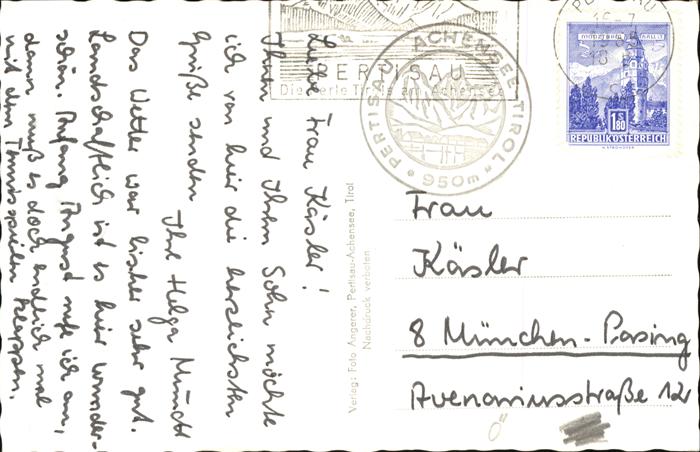 Liebe Frau Käsler!
Ihnen und Ihrem Sohn möchte
ich von hier die herzlichsten
Grüße senden
Ihre Helga Mündt
Das Wetter war bisher sehr gut.
Landschaftlich ist es hier wunder-
schön. Anfang August rufe ich an,
dann muß es doch endlich mal
mit dem Tennisspielen klappen.
Verlag: Foto Angerer, Pertisau-Achensee, Tirol
Nachdruck verboten
PERTISAU
Die Perle Tirols am Achensee
PERTISAU ACHENSEE-TIROL
950m
PERTISAU
16-7
MÜNZTURM HALL I. T.
S
1.80
REPUBLIK ÖSTERREICH
Frau
Käsler
8 München-Pasing
Avenariusstraße 12